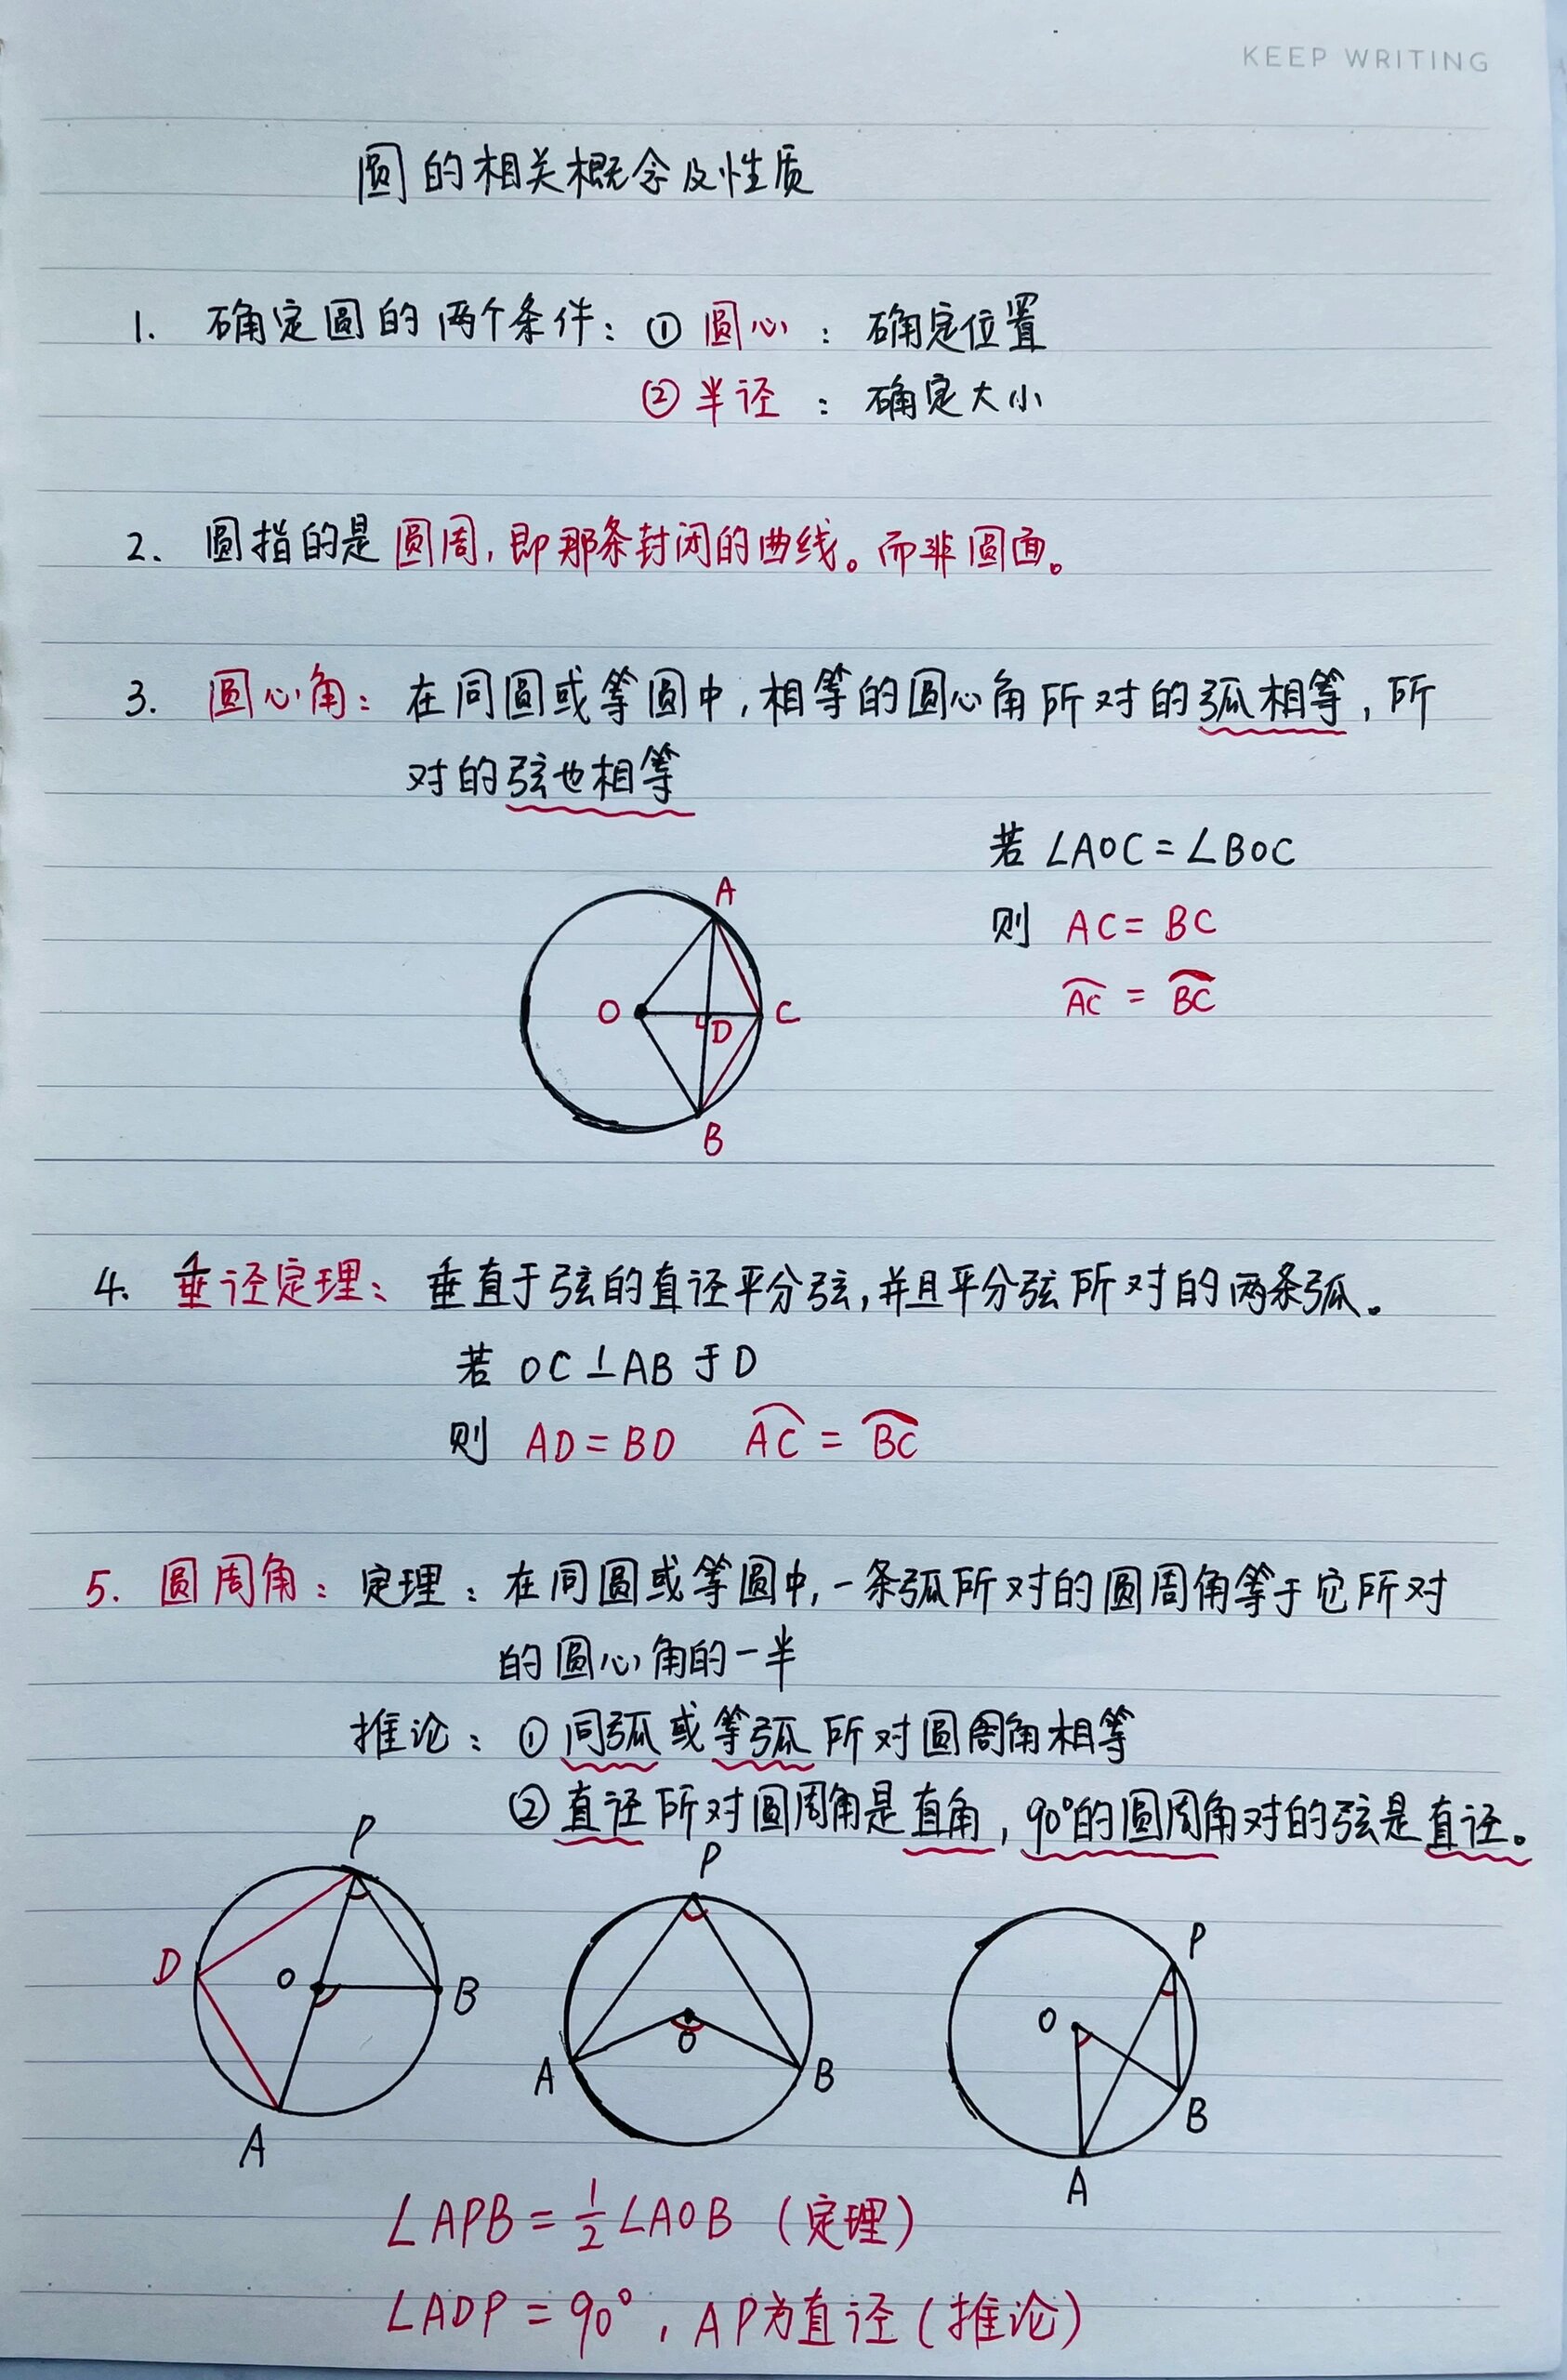 KEEP WRITING
圆的相关概念及性质
1. 确定圆的两个条件：① 圆心：确定位置
② 半径：确定大小
2、圆指的是圆周，即那条封闭的曲线。而非圆面。
3. 圆心角：在同圆或等圆中，相等的圆心角所对的弧相等，所
对的弦也相等
若 ∠AOC = ∠BOC
则 AC = BC
A͡C = B͡C
A
O
D
C
B
4. 垂径定理：垂直于弦的直径平分弦，并且平分弦所对的两条弧。
若 OC⊥AB 于D
则 AD = BD A͡C = B͡C
5. 圆周角：定理：在同圆或等圆中，一条弧所对的圆周角等于它所对
的圆心角的一半
推论：① 同弧或等弧所对圆周角相等
② 直径所对圆周角是直角，90°的圆周角对的弦是直径。
P
D
O
B
A
P
O
A
B
P
O
B
A
∠APB = ½∠AOB （定理）
∠ADP = 90°，AP为直径（推论）